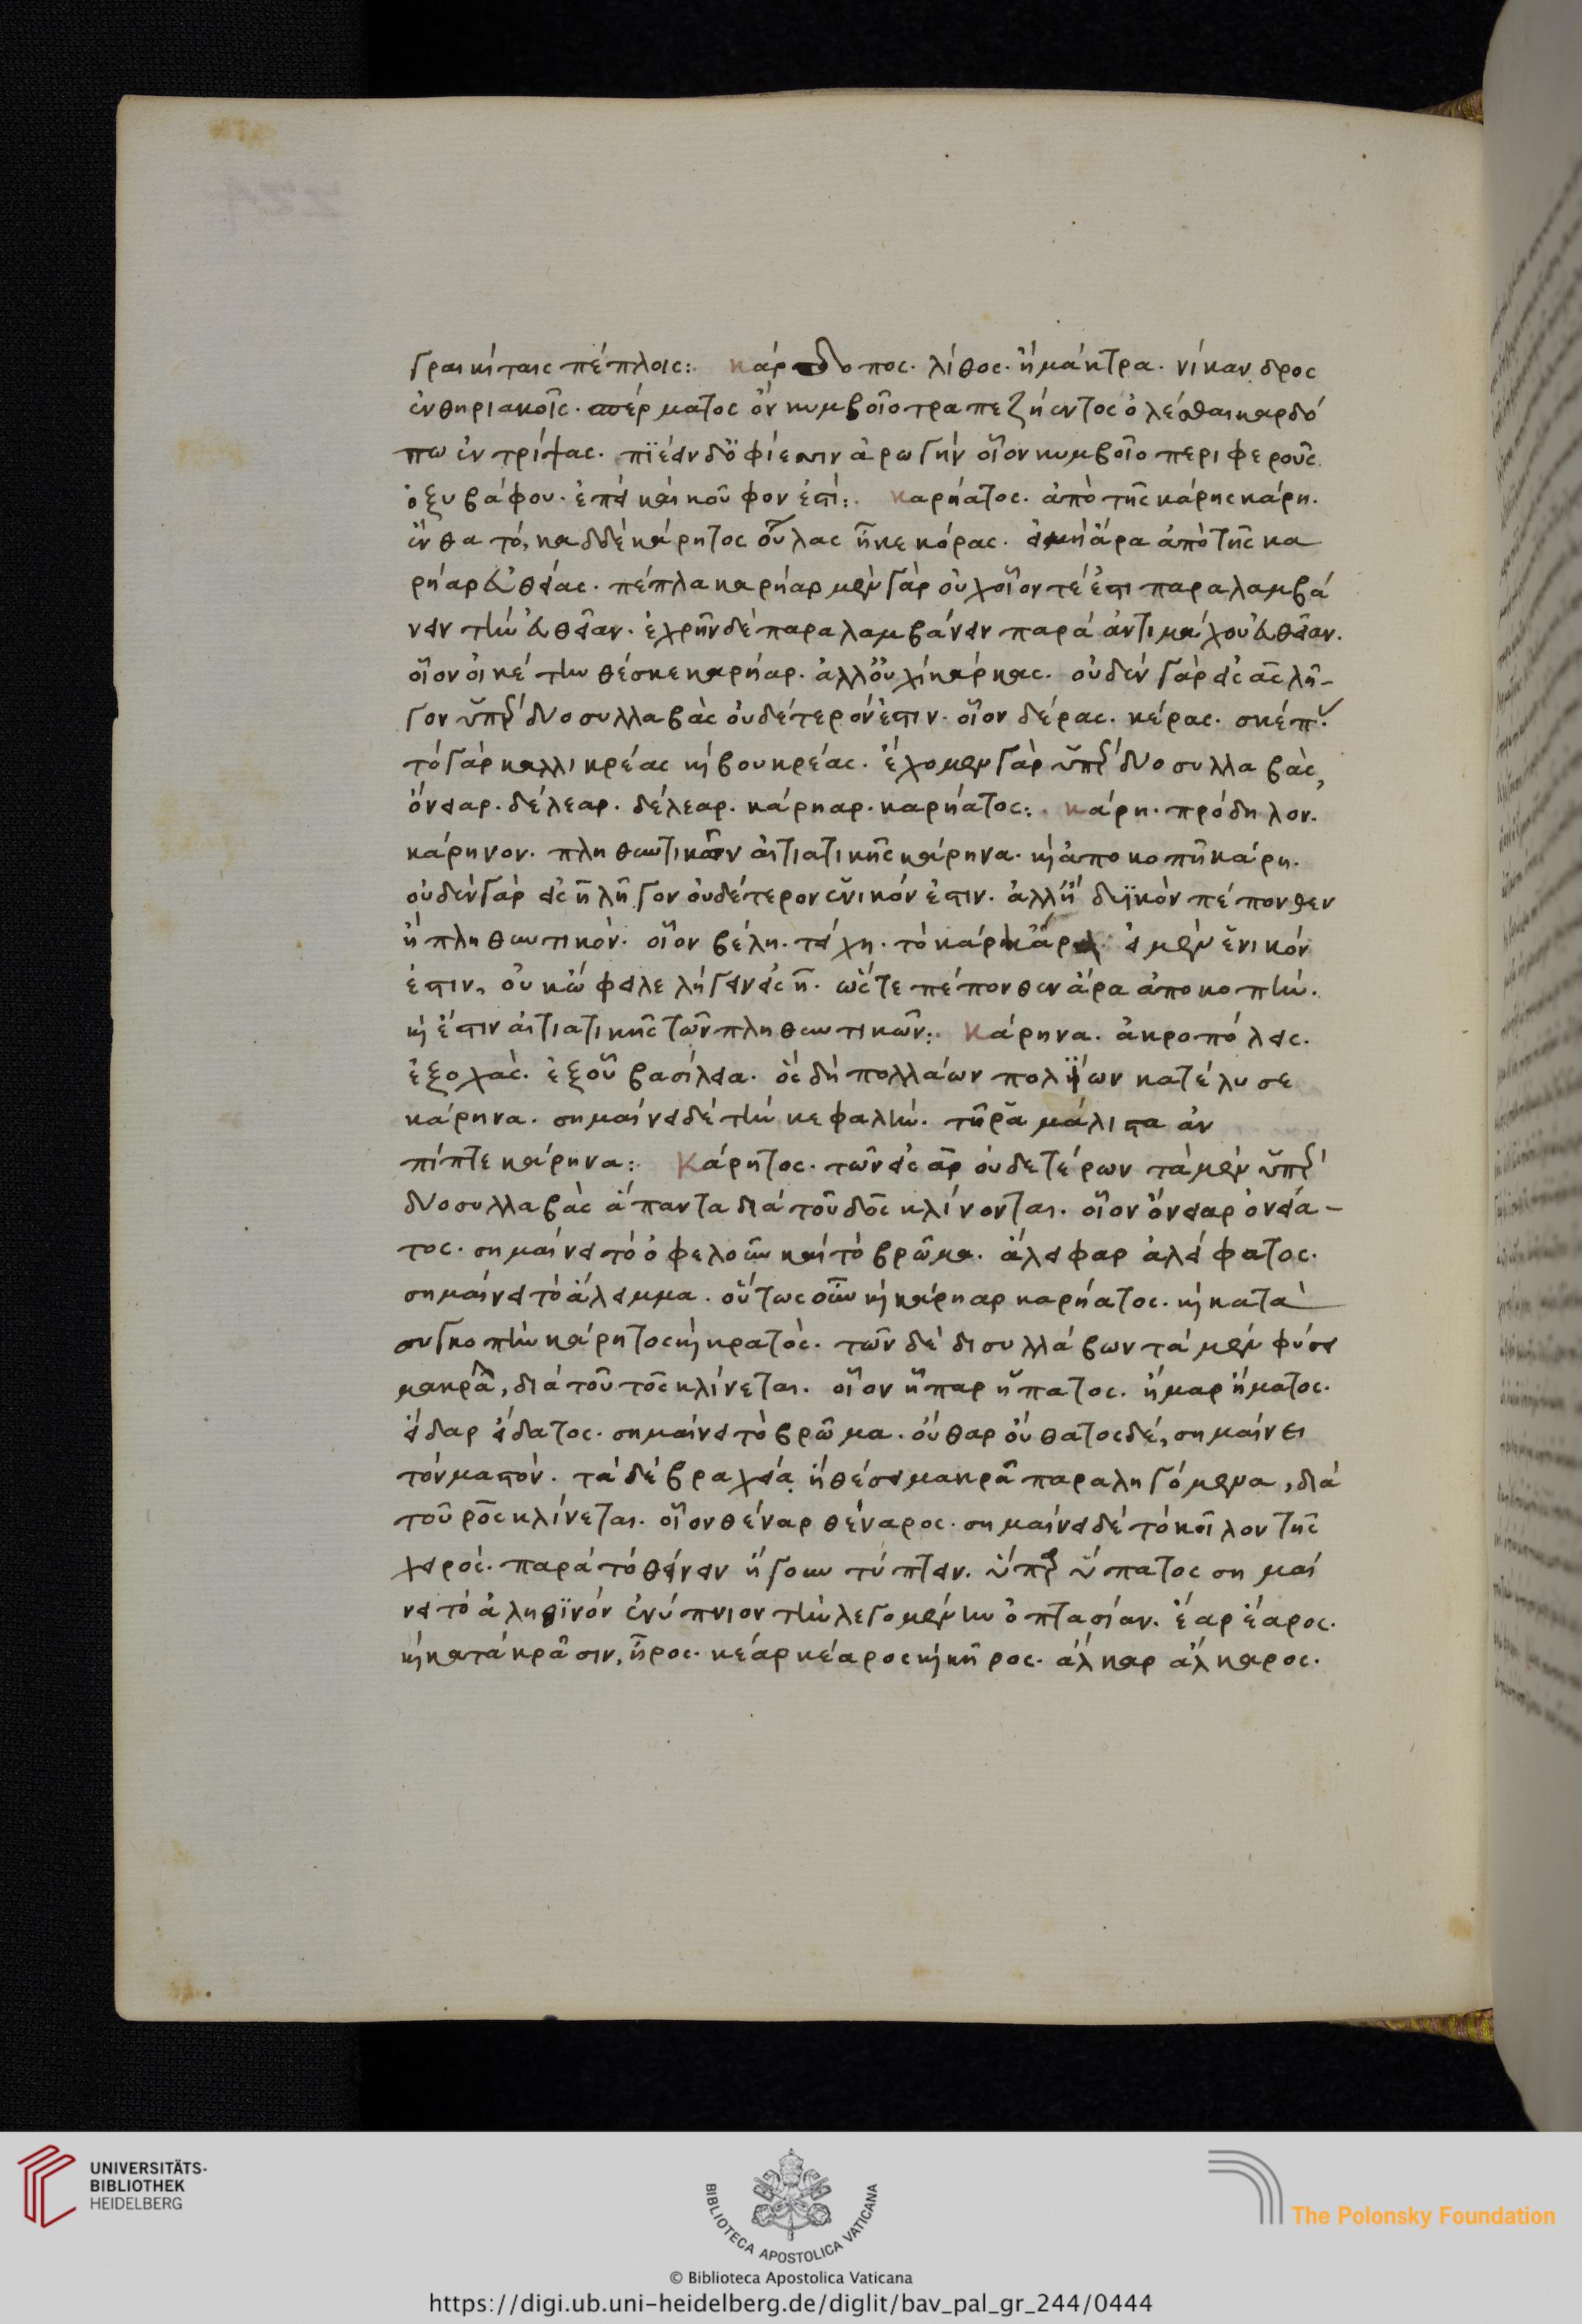 γραικίταις πέπλοις:. κάρδοπος. λίθος. ἢ μάκτρα. νίκανδρος
ἐν θηριακοῖς. σπέρματος ὃν κυμβοῖο τραπεζήεντος ὀλέσθαι καρδό
πω ἐντρίψας. πϊέειν δ᾽ ὀφίεσσιν ἀρωγήν οἷον κυμβοῖο περιφεροῦς
ὀξυβάφου. ἐπεὶ καὶ κοῦφον ἐστί:. καρήατος. ἀπὸ τῆς κάρης κάρη.
ἔνθα τό, καδδὲ κάρητος οὔλας ἧκε κόρας. εἰ μὴ ἄρα ἀπὸ τῆς κα
ρήαρ εὐθείας. πέπλακαρήαρ μὲν γὰρ οὐχ οἷον τέ ἐστι παραλαμβά
νειν τὴν εὐθεῖαν. ἐχρῆν δὲ παραλαμβάνειν παρά ἀντιμάχου εὐθεῖαν.
οἷον οἱ κέ την θέσκε καρήαρ. ἀλλ᾽ οὐχὶ κάρκας. οὐδέν γὰρ εἰς ας λῆ-
γον ὑπὲρ δύο συλλαβὰς οὐδέτερόν ἐστιν. οἷον δέρας. κέρας. σκέπας
τό γὰρ καλλικρέας καὶ βουκρέας. ἔχομεν γὰρ ὑπὲρ δύο συλλαβὰς,
ὄνειαρ. δέλεαρ. δέλεαρ. κάρηαρ. καρήατος:. κάρη. πρόδηλον.
κάρηνον. πληθυντικῶν αἰτιατικῆς κάρηνα. καὶ ἀποκοπῇ κάρη.
οὐδὲν γὰρ εἰς η λῆγον οὐδέτερον ἑνικόν ἐστιν. ἀλλ᾽ ἢ δυϊκὸν πέπονθεν
ἢ πληθυντικόν. οἷον βέλη. τείχη. τὸ κάρη ἄρα εἰ μὲν ἑνικόν
ἐστιν, οὐκ ὤφειλε λήγειν εἰς η. ὥστε πέπονθεν ἄρα ἀποκοπήν.
καὶ ἔστιν αἰτιατικῆς τῶν πληθυντικῶν:. Κάρηνα. ἀκροπόλεις.
ἐξοχὰς. ἐξ οὗ βασίλεια. ὃς δὴ πολλάων πολίων κατέλυσε
κάρηνα. σημαίνει δὲ τὴν κεφαλήν. τῆρα μάλιστα ἀν
πίπτε κάρηνα: Κάρητος. τῶν εἰς αρ οὐδετέρων τὰ μὲν ὑπὲρ
δύο συλλαβὰς ἅπαντα διά τοῦ δος κλίνονται. οἷον ὄνειαρ ὀνεία-
τος. σημαίνει τὸ ὀφελοῦν καὶ τὸ βρῶμα. ἄλειφαρ ἀλείφατος.
σημαίνει τὸ ἄλειμμα. οὕτως οὖν καὶ κάρηαρ καρήατος. καὶ κατὰ
συγκοπὴν κάρητος καὶ κρατὸς. τῶν δὲ δισυλλάβων τά μὲν φύσει
μακρᾶ, διά τοῦ τος κλίνεται. οἷον ἧπαρ ἥπατος. ἦμαρ ἤματος.
εἶδαρ εἴδατος. σημαίνει τὸ βρῶμα. οὖθαρ οὔθατος δέ, σημαίνει
τὸν μαστόν. τὰ δὲ βραχεία ἢ θέσει μακρᾶ παραληγόμενα, διά
τοῦ ρος κλίνεται. οἷον θέναρ θέναρος. σημαίνει δέ τὸ κοῖλον τῆς
χειρός. παρά τὸ θείνειν ἤγουν τύπτειν. ὕπαρ ὕπατος σημαί
νει τὸ ἀληθινὸν ἐνύπνιον τὴν λεγομένην ὀπτασίαν. ἔαρ ἔαρος.
καὶ κατὰ κρᾶσιν, ἦρος. κέαρ κέαρος καὶ κῆρος. ἄλκαρ ἄλκαρος.
UNIVERSITÄTS-
BIBLIOTHEK
HEIDELBERG
BIBLIOTECA APOSTOLICA VATICANA
The Polonsky Foundation
© Biblioteca Apostolica Vaticana
https://digi.ub.uni-heidelberg.de/diglit/bav_pal_gr_244/0444